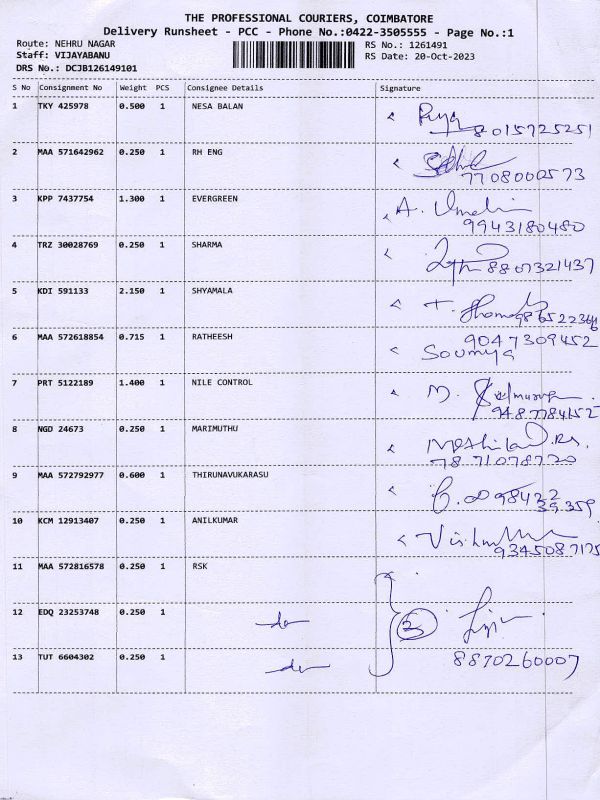 THE PROFESSIONAL COURIERS, COIMBATORE
Delivery Runsheet - PCC - Phone No.:0422-3505555 - Page No.:1
Route: NEHRU NAGAR RS No.: 1261491
Staff: VIJAYABANU RS Date: 20-Oct-2023
DRS No.: DCJB126149101
S No Consignment No Weight PCS Consignee Details Signature
1 TKY 425978 0.500 1 NESA BALAN
8015725251
2 MAA 571642962 0.250 1 RH ENG
7708000573
3 KPP 7437754 1.300 1 EVERGREEN A.
9943180480
4 TRZ 30028769 0.250 1 SHARMA 8807321437
5 KDI 591133 2.150 1 SHYAMALA T.
6 MAA 572618854 0.715 1 RATHEESH 9047309452
Soumya
7 PRT 5122189 1.400 1 NILE CONTROL M.
9487784152
8 NGD 24673 0.250 1 MARIMUTHU
7871078720
9 MAA 572792977 0.600 1 THIRUNAVUKARASU 98422
39359
10 KCM 12913407 0.250 1 ANILKUMAR
9345087175
11 MAA 572816578 0.250 1 RSK
12 EDQ 23253748 0.250 1 do 3
13 TUT 6604302 0.250 1 do 8870260007